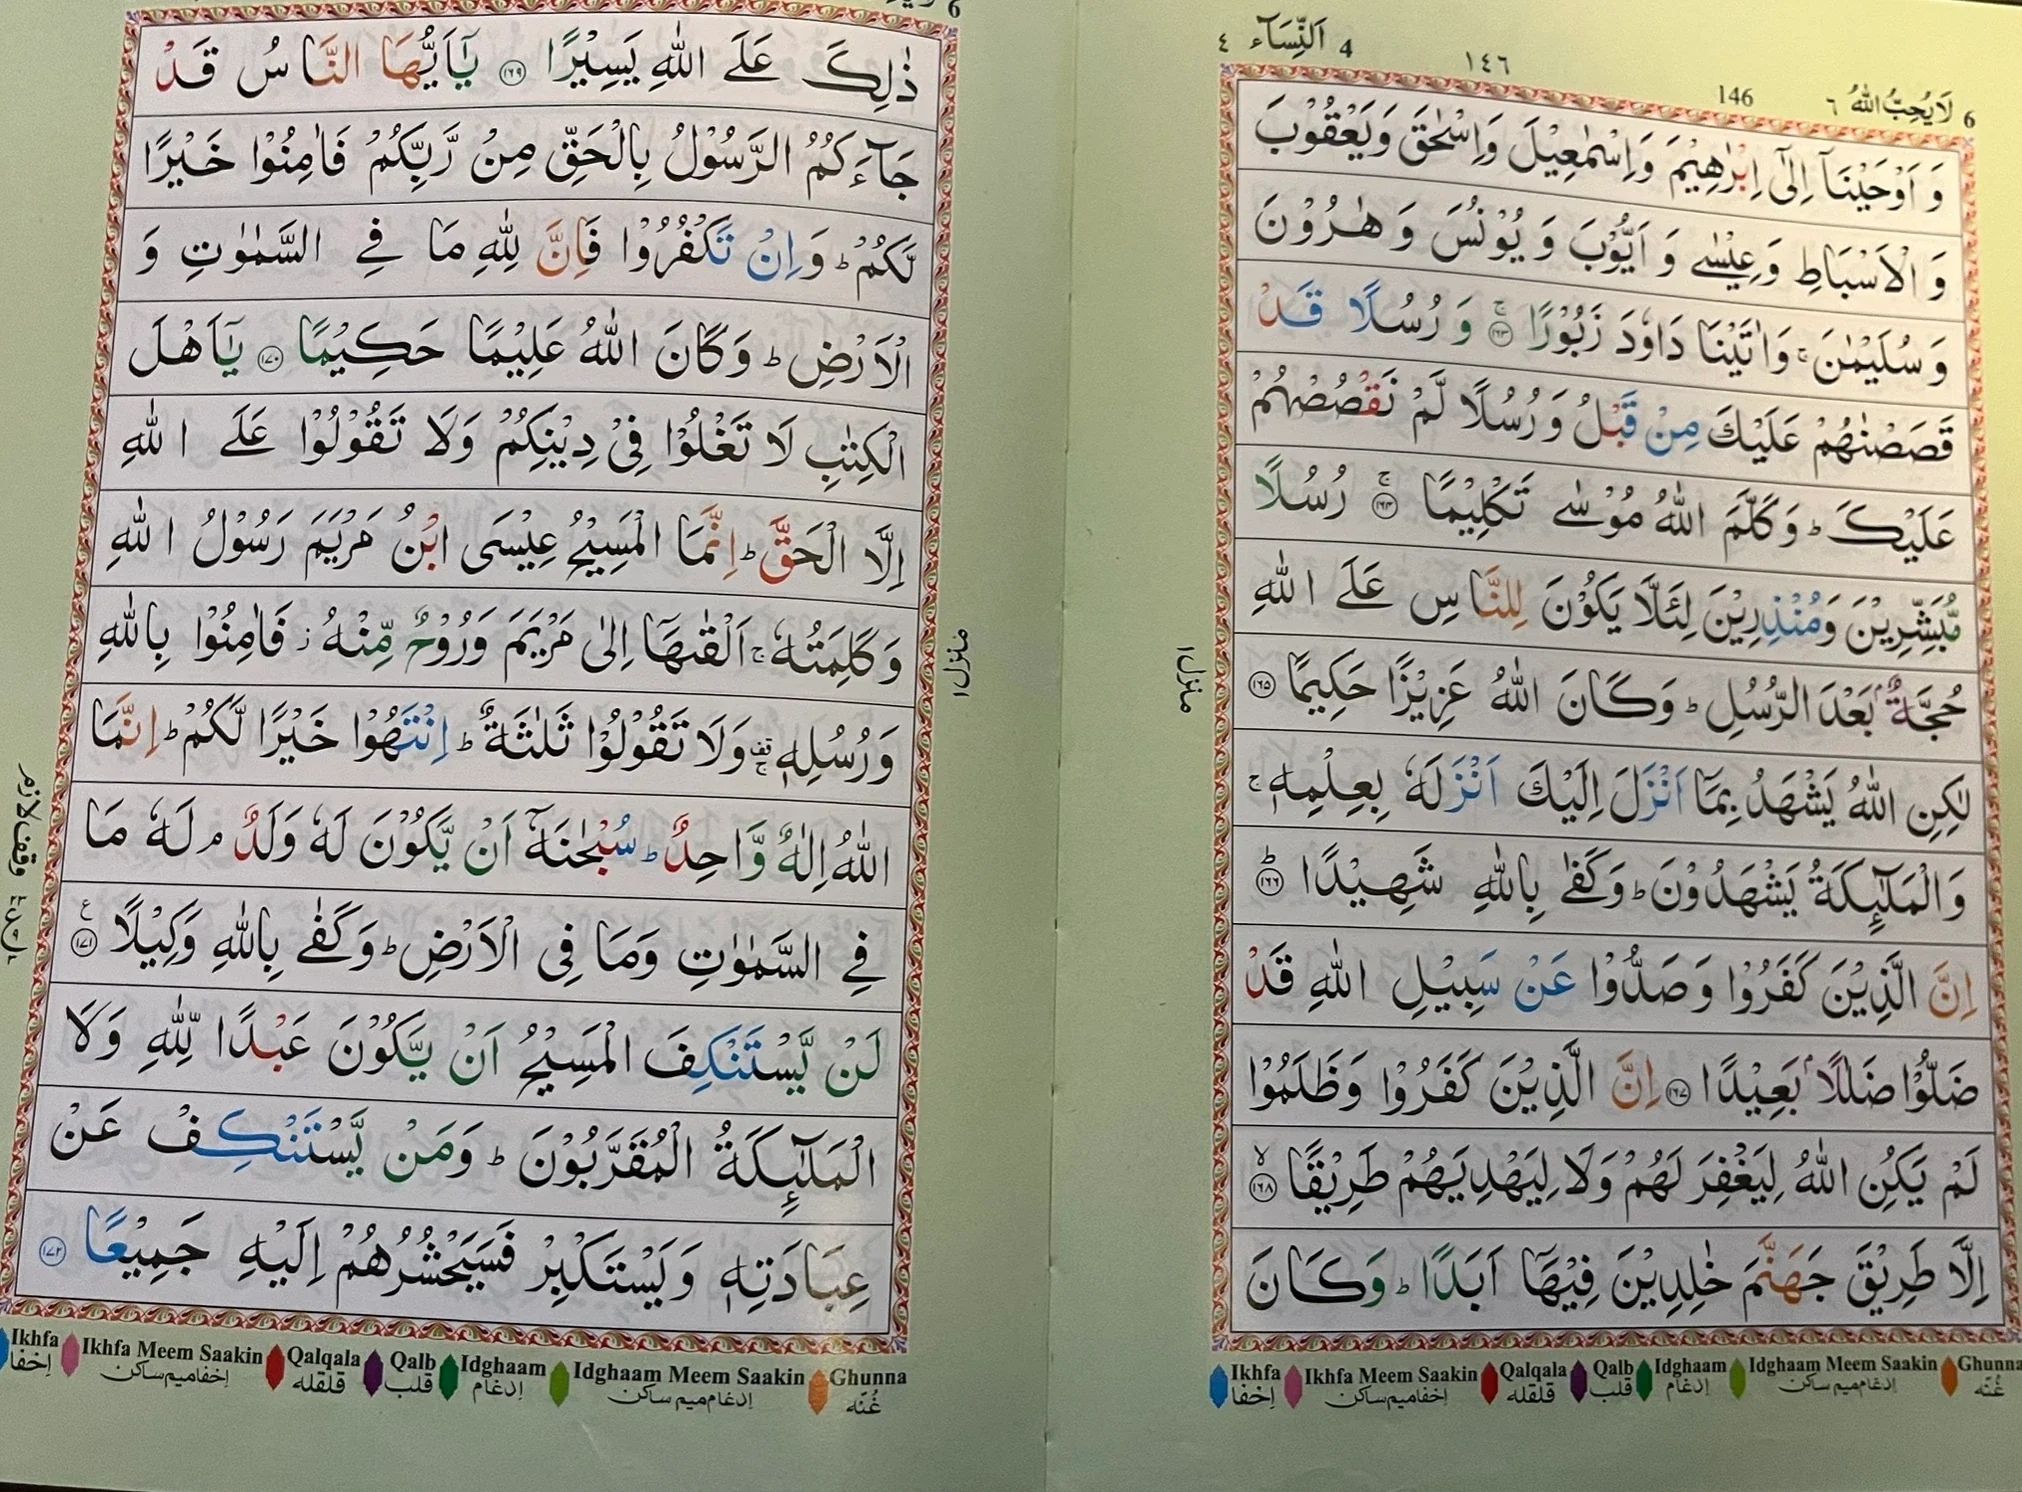 4 اَلنِّسَآء ٤
١٤٦
146
6 لَا يُحِبُّ اللّٰهُ ٦
وَ اَوْحَيْنَاۤ اِلٰۤى اِبْرٰهِيْمَ وَاِسْمٰعِيْلَ وَاِسْحٰقَ وَيَعْقُوْبَ
وَ الْاَسْبَاطِ وَعِيْسٰى وَ اَيُّوْبَ وَ يُوْنُسَ وَ هٰرُوْنَ
وَ سُلَيْمٰنَ ۚ وَاٰتَيْنَا دَاوٗدَ زَبُوْرًا ۚ ﴿١٦٣﴾ وَ رُسُلًا قَدْ
قَصَصْنٰهُمْ عَلَيْكَ مِنْ قَبْلُ وَ رُسُلًا لَّمْ نَقْصُصْهُمْ
عَلَيْكَ ؕ وَكَلَّمَ اللّٰهُ مُوْسٰى تَكْلِيْمًا ۚ ﴿١٦٤﴾ رُسُلًا
مُّبَشِّرِيْنَ وَمُنْذِرِيْنَ لِئَلَّا يَكُوْنَ لِلنَّاسِ عَلَى اللّٰهِ
حُجَّةٌۢ بَعْدَ الرُّسُلِ ؕ وَكَانَ اللّٰهُ عَزِيْزًا حَكِيْمًا ﴿١٦٥﴾
لٰكِنِ اللّٰهُ يَشْهَدُ بِمَاۤ اَنْزَلَ اِلَيْكَ اَنْزَلَهٗ بِعِلْمِهٖ ۚ
وَالْمَلٰٓئِكَةُ يَشْهَدُوْنَ ؕ وَكَفٰى بِاللّٰهِ شَهِيْدًا ؕ ﴿١٦٦﴾
اِنَّ الَّذِيْنَ كَفَرُوْا وَ صَدُّوْا عَنْ سَبِيْلِ اللّٰهِ قَدْ
ضَلُّوْا ضَلٰلًاۢ بَعِيْدًا ﴿١٦٧﴾ اِنَّ الَّذِيْنَ كَفَرُوْا وَظَلَمُوْا
لَمْ يَكُنِ اللّٰهُ لِيَغْفِرَ لَهُمْ وَلَا لِيَهْدِيَهُمْ طَرِيْقًا ۙ ﴿١٦٨﴾
اِلَّا طَرِيْقَ جَهَنَّمَ خٰلِدِيْنَ فِيْهَاۤ اَبَدًا ؕ وَكَانَ
منزل ١
Ikhfa Ikhfa Meem Saakin Qalqala Qalb Idghaam Idghaam Meem Saakin Ghunna
اِخفا اِخفامیم ساکن قلقله قلب اِدغام اِدغام میم ساکن غُنّه
ذٰلِكَ عَلَى اللّٰهِ يَسِيْرًا ﴿١٦٩﴾ يٰۤاَيُّهَا النَّاسُ قَدْ
جَآءَكُمُ الرَّسُوْلُ بِالْحَقِّ مِنْ رَّبِّكُمْ فَاٰمِنُوْا خَيْرًا
لَّكُمْ ؕ وَاِنْ تَكْفُرُوْا فَاِنَّ لِلّٰهِ مَا فِى السَّمٰوٰتِ وَ
الْاَرْضِ ؕ وَكَانَ اللّٰهُ عَلِيْمًا حَكِيْمًا ﴿١٧٠﴾ يٰۤاَهْلَ
الْكِتٰبِ لَا تَغْلُوْا فِىْ دِيْنِكُمْ وَلَا تَقُوْلُوْا عَلَى اللّٰهِ
اِلَّا الْحَقَّ ؕ اِنَّمَا الْمَسِيْحُ عِيْسَى ابْنُ مَرْيَمَ رَسُوْلُ اللّٰهِ
وَكَلِمَتُهٗ ۚ اَلْقٰىهَاۤ اِلٰى مَرْيَمَ وَرُوْحٌ مِّنْهُ ؗ فَاٰمِنُوْا بِاللّٰهِ
وَرُسُلِهٖ ۚ قف وَلَا تَقُوْلُوْا ثَلٰثَةٌ ؕ اِنْتَهُوْا خَيْرًا لَّكُمْ ؕ اِنَّمَا
اللّٰهُ اِلٰهٌ وَّاحِدٌ ؕ سُبْحٰنَهٗۤ اَنْ يَّكُوْنَ لَهٗ وَلَدٌ ۘ لَهٗ مَا
فِى السَّمٰوٰتِ وَمَا فِى الْاَرْضِ ؕ وَكَفٰى بِاللّٰهِ وَكِيْلًا ﴿١٧١﴾ ع
لَنْ يَّسْتَنْكِفَ الْمَسِيْحُ اَنْ يَّكُوْنَ عَبْدًا لِّلّٰهِ وَلَا
الْمَلٰٓئِكَةُ الْمُقَرَّبُوْنَ ؕ وَمَنْ يَّسْتَنْكِفْ عَنْ
عِبَادَتِهٖ وَيَسْتَكْبِرْ فَسَيَحْشُرُهُمْ اِلَيْهِ جَمِيْعًا ﴿١٧٢﴾
منزل ١
وقف لازم
Ikhfa Ikhfa Meem Saakin Qalqala Qalb Idghaam Idghaam Meem Saakin Ghunna
اِخفا اِخفامیم ساکن قلقله قلب اِدغام اِدغام میم ساکن غُنّه